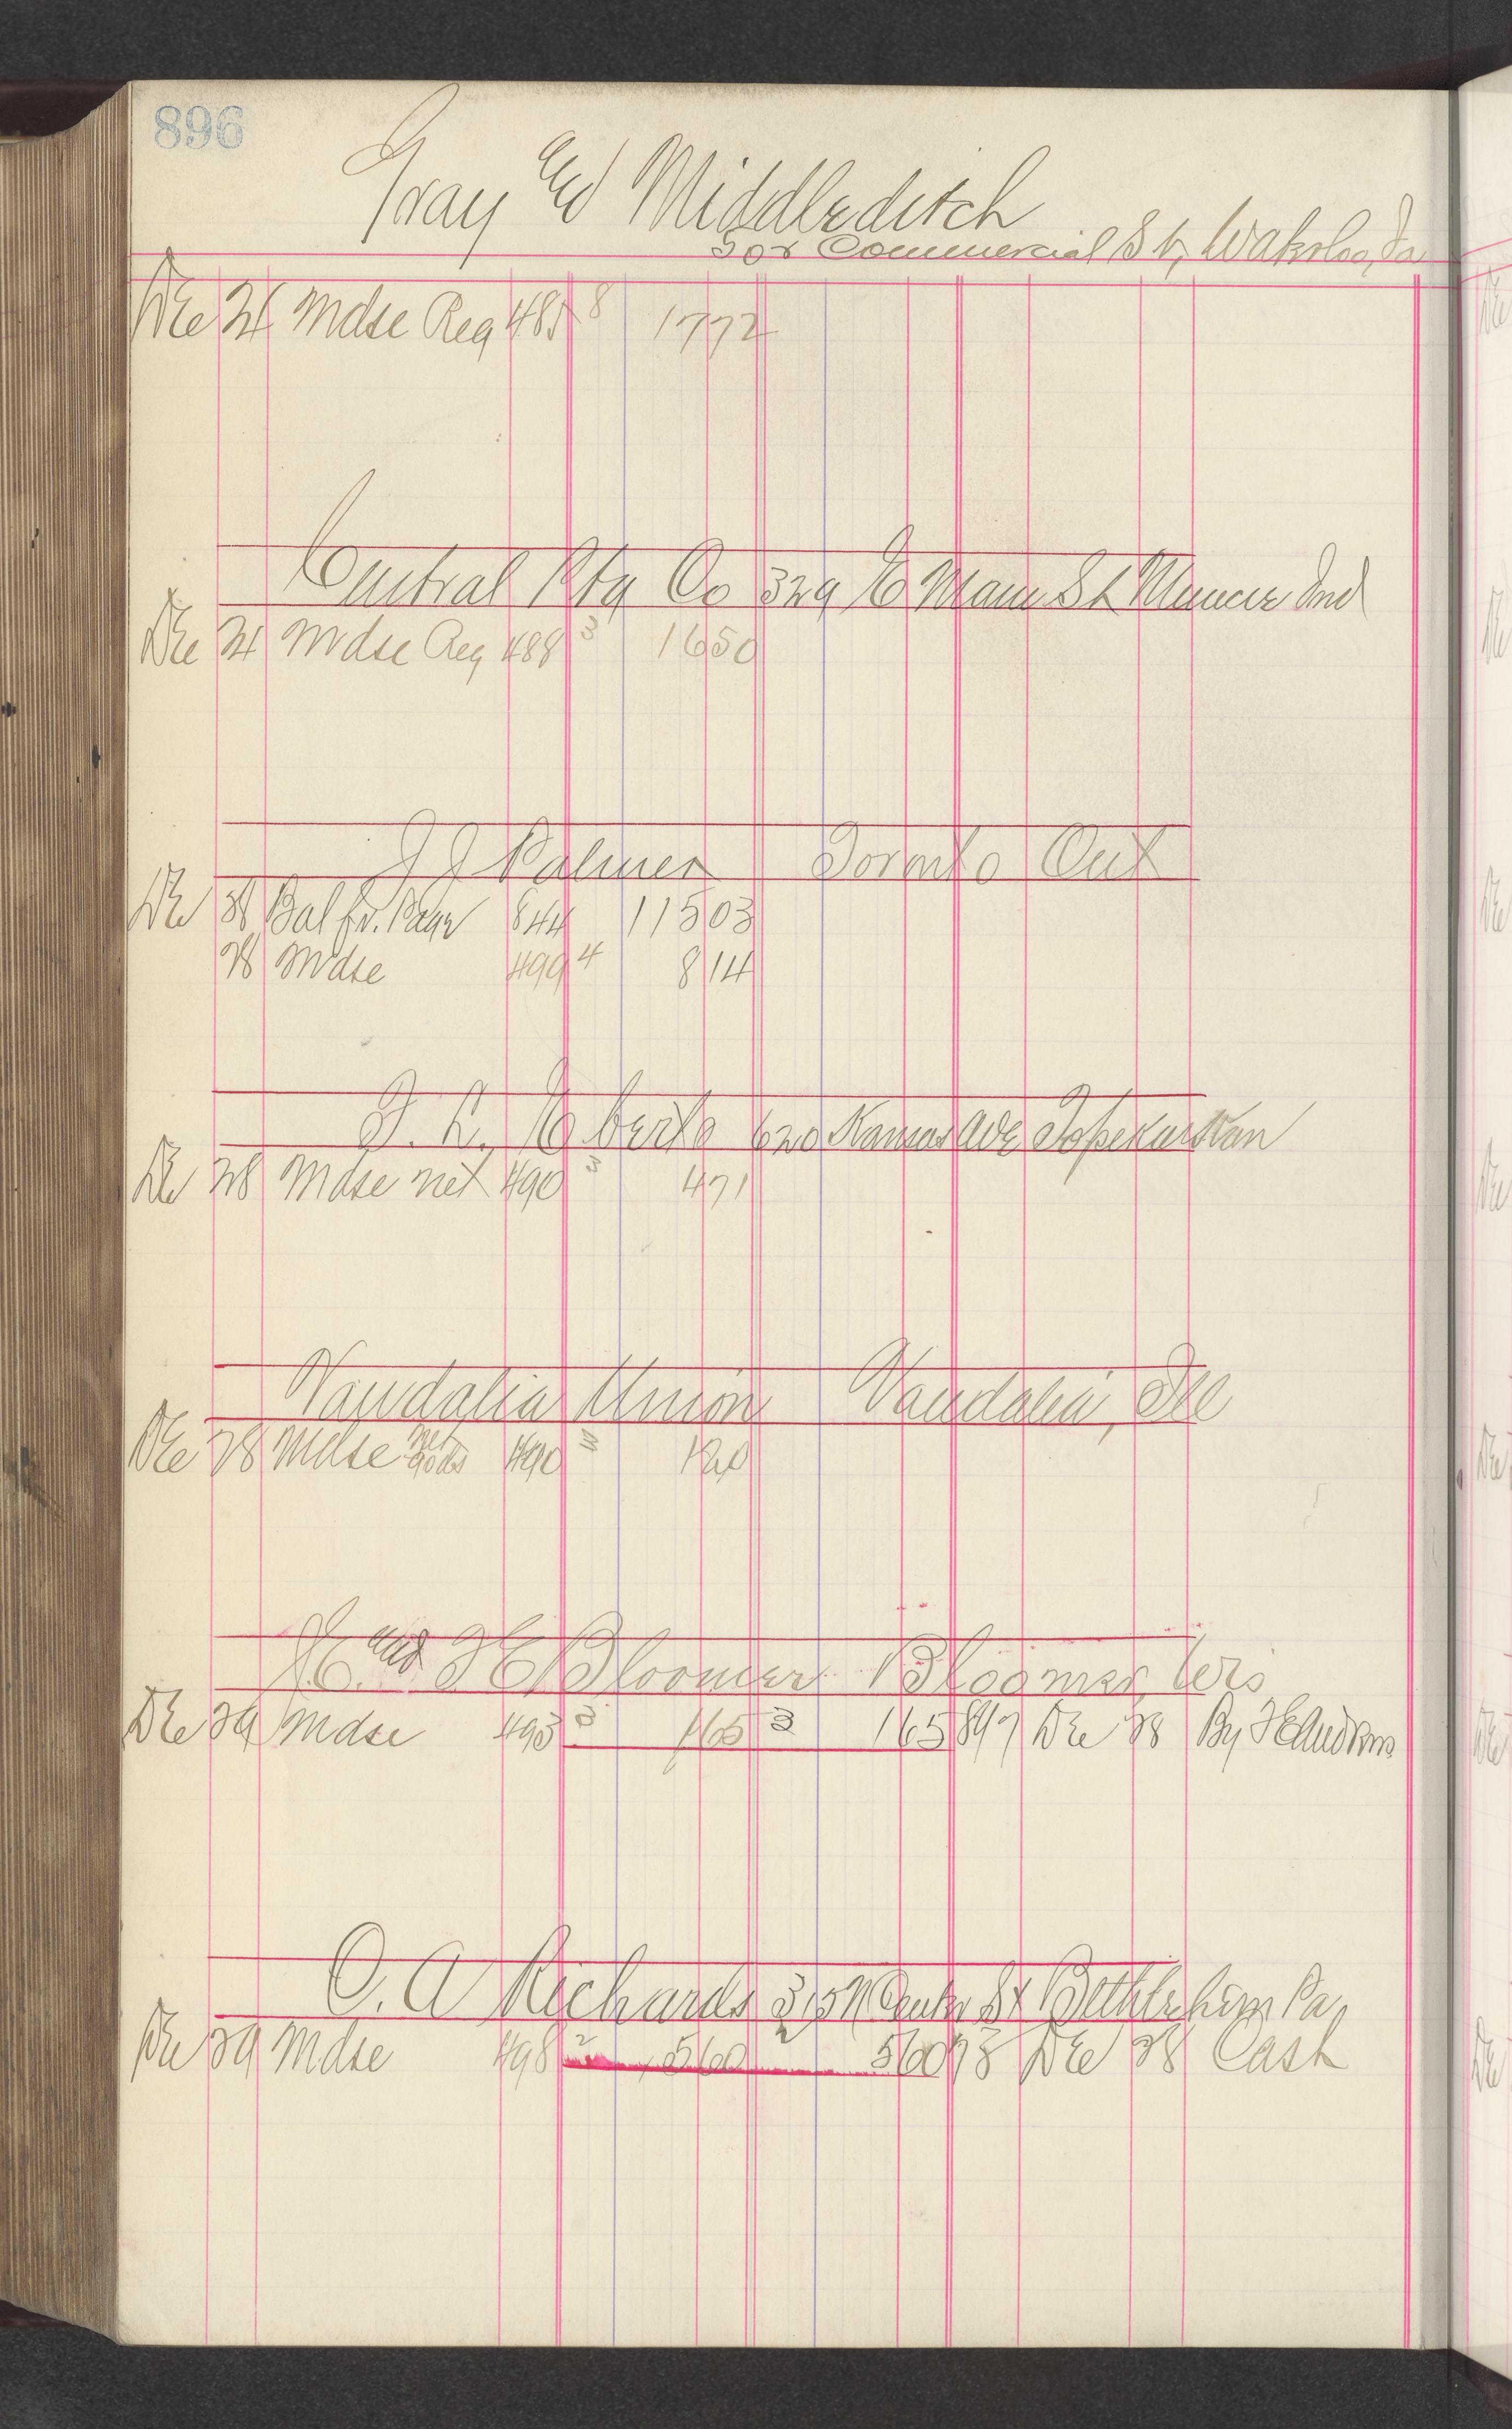 896
Gray and Middleditch
Commercial St, Waterloo, Ia
Dec 24 Mdse Reg 485 8 17 72
Central Ptg Co 329 E Main St Muncie Ind
Dec 24 Mdse Reg 488 3 16 50
J J Palmer Toronto Ont
Dec 28 Bal fr. Page 844 115 03
28 Mdse 499 4 8 14
T. L. Eberts 620 Kansas Ave Topeka Kan
Dec 28 Mdse net 490 3 4 71
Vandalia Union Vandalia, Ill
Dec 28 Mdse net goods 490 3 1 20
and Bloomer Bloomer, Wis
Dec 29 Mdse 493 3 1 65 3 1 65 897 Dec 28 By
O. A Richards St Bethlehem Pa,
Dec 29 Mdse 498 2 5 60 5 60 98 Dec 28 Cash